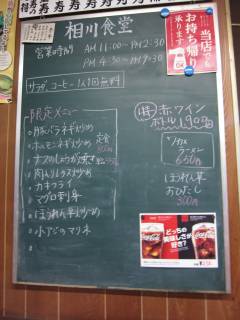 寿寿寿寿寿
当店でも
お持ち帰り
承ります
相川食堂
営業時間
AM 11:00〜PM 2:30
PM 4:30〜PM 9:30
サラダ、コーヒー1人1回無料
限定メニュー
豚バラネギ炒め
ホルモンネギ炒め
定食
ナスのしょうが焼き
肉入りレタス炒め
カキフライ
マグロ刺身
ほうれん草炒め
小アジのマリネ
(特)赤ワイン
ボトル1900円
ラーメン
650円
ほうれん草
おひたし
300円
どっちの
美味しさが
好き?
Coca-Cola